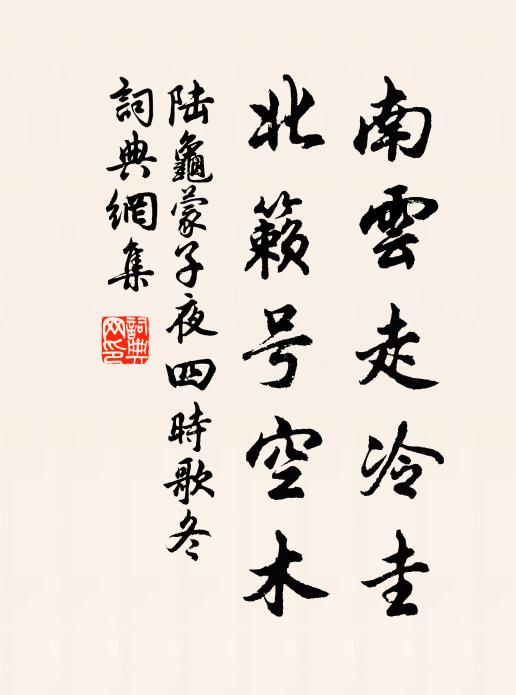 南雲走冷圭
北籟号空木
陆龜蒙子夜四時歌冬
詞典網集
詞典
网印